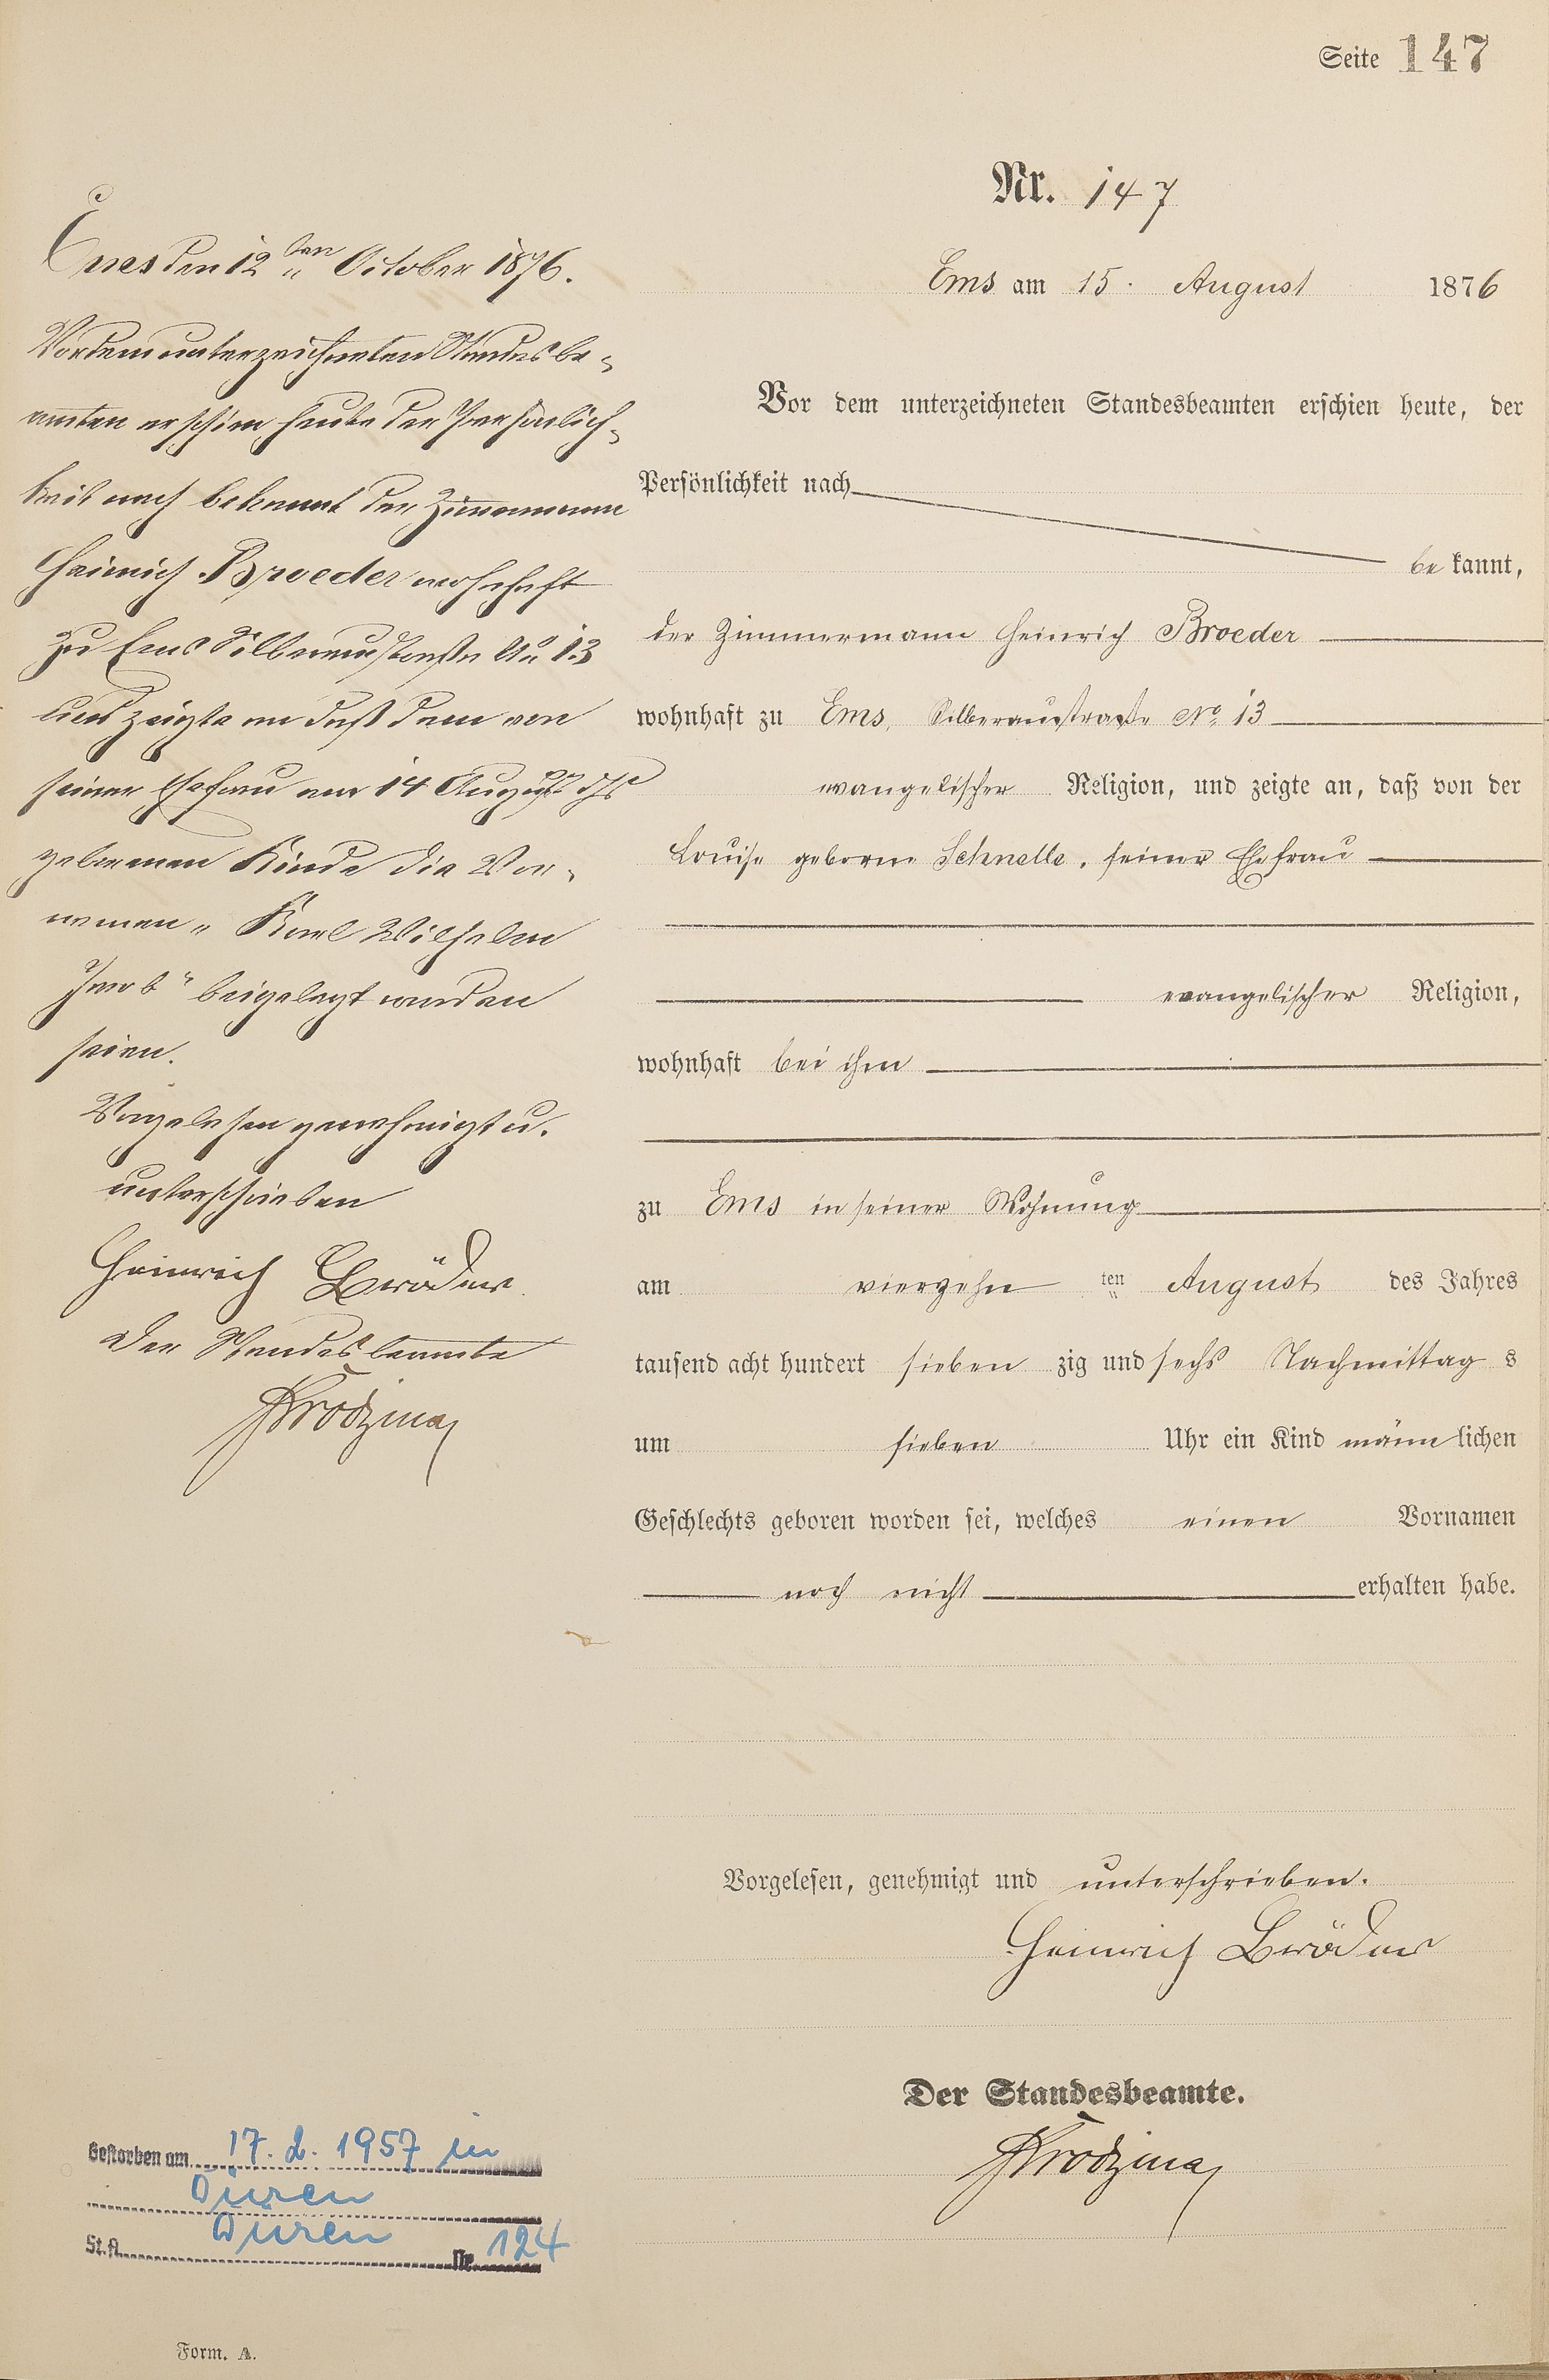 Seite 147
Nr. 147
Ems am 15. August 1876
Vor dem unterzeichneten Standesbeamten erschien heute, der
Persönlichkeit nach
be kannt,
der Zimmermann Heinrich Broeder
wohnhaft zu Ems, Silberaustraße No. 13
evangelischer Religion, und zeigte an, daß von der
Louise geborne Schnelle, seiner Ehefrau
evangelischer Religion,
wohnhaft bei ihm
zu Ems in seiner Wohnung
am vierzehn ten August des Jahres
tausend acht hundert sieben zig und sechs Nachmittag s
um sieben Uhr ein Kind männ lichen
Geschlechts geboren worden sei, welches einen Vornamen
noch nicht erhalten habe.
Vorgelesen, genehmigt und unterschrieben.
Heinrich Bröder
Der Standesbeamte.
Ems den 12ten October 1876.
Vor dem unterzeichneten Standesbe-
amten erschien heute der Persönlich-
keit nach bekannt der Zimmermann
Heinrich Broeder wohnhaft
zu Ems Silberaustraße No 13
und zeigte an daß dem von
seiner Ehefrau am 14 August
geborenen Kinde die Vor-
namen „Karl Wilhelm
Jacob" beigelegt worden
seien.
Vorgelesen genehmigt u.
unterschrieben
Heinrich Bröder
Der Standesbeamte
Gestorben am 17. 2. 1957 in
Düren
St.A. Düren Nr. 124
Form. A.